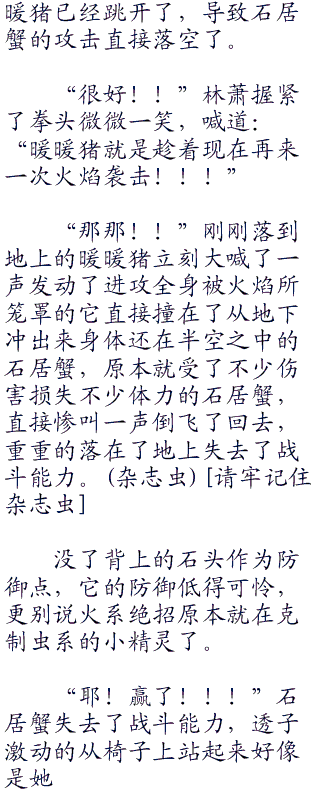 暖猪已经跳开了，导致石居
蟹的攻击直接落空了。
“很好！！”林萧握紧
了拳头微微一笑，喊道：
“暖暖猪就是趁着现在再来
一次火焰袭击！！！”
“那那！！”刚刚落到
地上的暖暖猪立刻大喊了一
声发动了进攻全身被火焰所
笼罩的它直接撞在了从地下
冲出来身体还在半空之中的
石居蟹，原本就受了不少伤
害损失不少体力的石居蟹，
直接惨叫一声倒飞了回去，
重重的落在了地上失去了战
斗能力。(杂志虫)[请牢记住
杂志虫]
没了背上的石头作为防
御点，它的防御低得可怜，
更别说火系绝招原本就在克
制虫系的小精灵了。
“耶！赢了！！！”石
居蟹失去了战斗能力，透子
激动的从椅子上站起来好像
是她